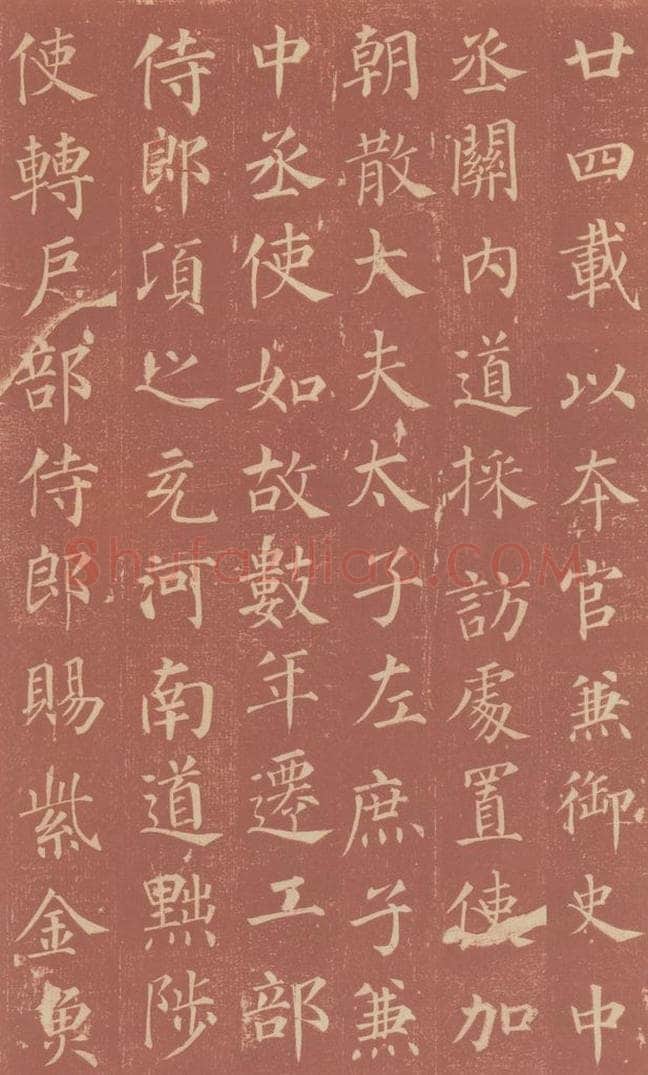 廿四載以本官兼御史中
丞關內道採訪處置使加
朝散大夫太子左庶子兼
中丞使如故數年遷工部
侍郎頃之充河南道黜陟
使轉戶部侍郎賜紫金魚
Shufaziliao.COM